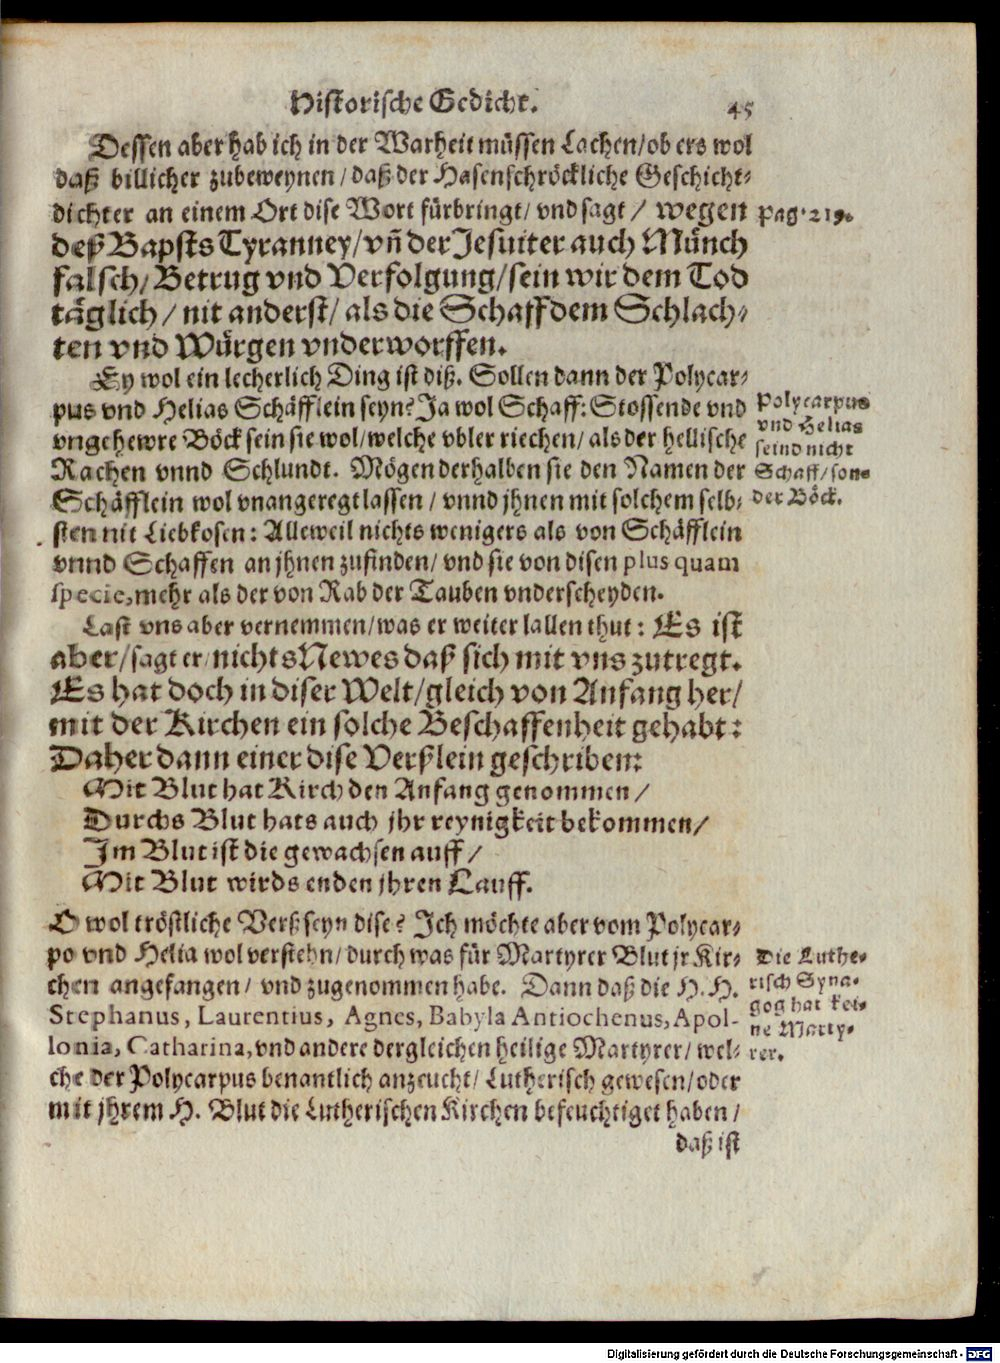 Historische Gedicht. 45
Dessen aber hab ich in der Warheit müssen Lachen/ob ers wol
daß billicher zubeweynen/daß der Hasenschröckliche Geschicht-
dichter an einem Ort dise Wort fürbringt/vnd sagt/ wegen
pag. 219.
deß Bapsts Tyranney/vñ der Jesuiter auch Münch
falsch/Betrug vnd Verfolgung/sein wir dem Tod
täglich/nit anderst/als die Schaff dem Schlach-
ten vnd Würgen vnderworffen.
Ey wol ein lecherlich Ding ist diß. Sollen dann der Polycar-
pus vnd Helias Schäfflein seyn? Ja wol Schaff: Stossende vnd
vngehewre Böck sein sie wol/welche vbler riechen/als der hellische
Rachen vnnd Schlundt. Mögen derhalben sie den Namen der
Schäfflein wol vnangeregt lassen/vnnd jhnen mit solchem selb-
sten nit Liebkosen: Alleweil nichts wenigers als von Schäfflein
vnnd Schaffen an jhnen zufinden/vnd sie von disen plus quam
specie, mehr als der von Rab der Tauben vnderscheyden.
Polycarpus
vnd Helias
seind nicht
Schaff/son-
der Böck.
Last vns aber vernemmen/was er weiter lallen thut: Es ist
aber/sagt er/nichts Newes daß sich mit vns zutregt.
Es hat doch in diser Welt/gleich von Anfang her/
mit der Kirchen ein solche Beschaffenheit gehabt:
Daher dann einer dise Verßlein geschriben:
Mit Blut hat Kirch den Anfang genommen/
Durchs Blut hats auch jhr reynigkeit bekommen/
Im Blut ist die gewachsen auff/
Mit Blut wirds enden jhren Lauff.
O wol tröstliche Verß seyn dise? Ich möchte aber vom Polycar-
po vnd Helia wol verstehn/durch was für Martyrer Blut jr Kir-
chen angefangen/vnd zugenommen habe. Dann daß die H. H.
Stephanus, Laurentius, Agnes, Babyla Antiochenus, Apol-
lonia, Catharina, vnd andere dergleichen heilige Martyrer/wel-
che der Polycarpus benantlich anzeucht/Lutherisch gewesen/oder
mit jhrem H. Blut die Lutherischen Kirchen befeuchtiget haben/
Die Luthe-
risch Syna-
gog hat kei-
ne Marty-
rer.
daß ist
Digitalisierung gefördert durch die Deutsche Forschungsgemeinschaft - DFG